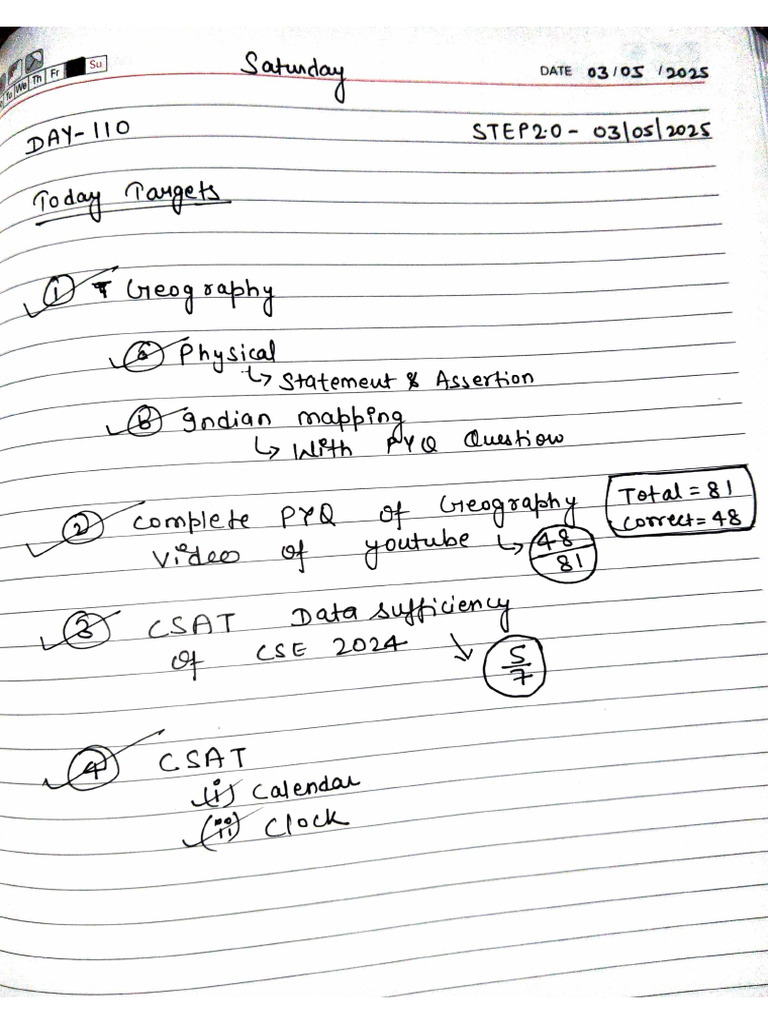 To We Th Fr Su
Saturday
DATE 03/05/2025
DAY-110
STEP2.0- 03/05/2025
Today Targets
① Geography
Physical
↳ Statement & Assertion
Ⓑ Indian mapping
↳ With PYQ Question
② Complete PYQ of Geography
Video of youtube ↳ 48/81
Total = 81
Correct = 48
③ CSAT Data sufficiency
of CSE 2024 ↘ 5/7
④ CSAT
(i) Calendar
(ii) Clock